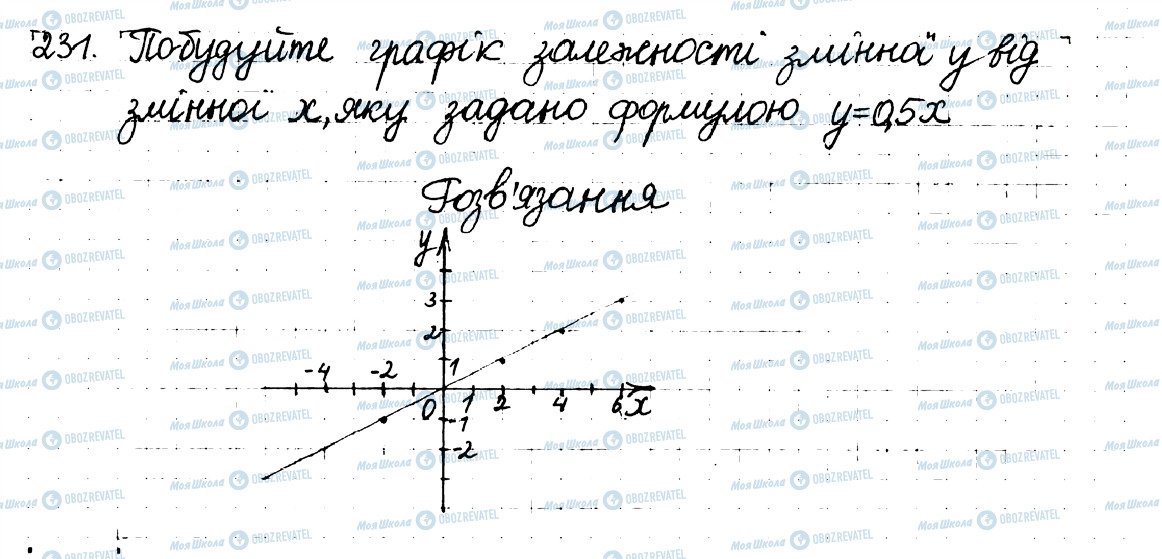 231. Побудуйте графік залежності змінної у від
змінної х, яку задано формулою у=0,5х
Розв'язання
у
3
2
-4 -2 1
0 1 2 4 6 х
-1
-2